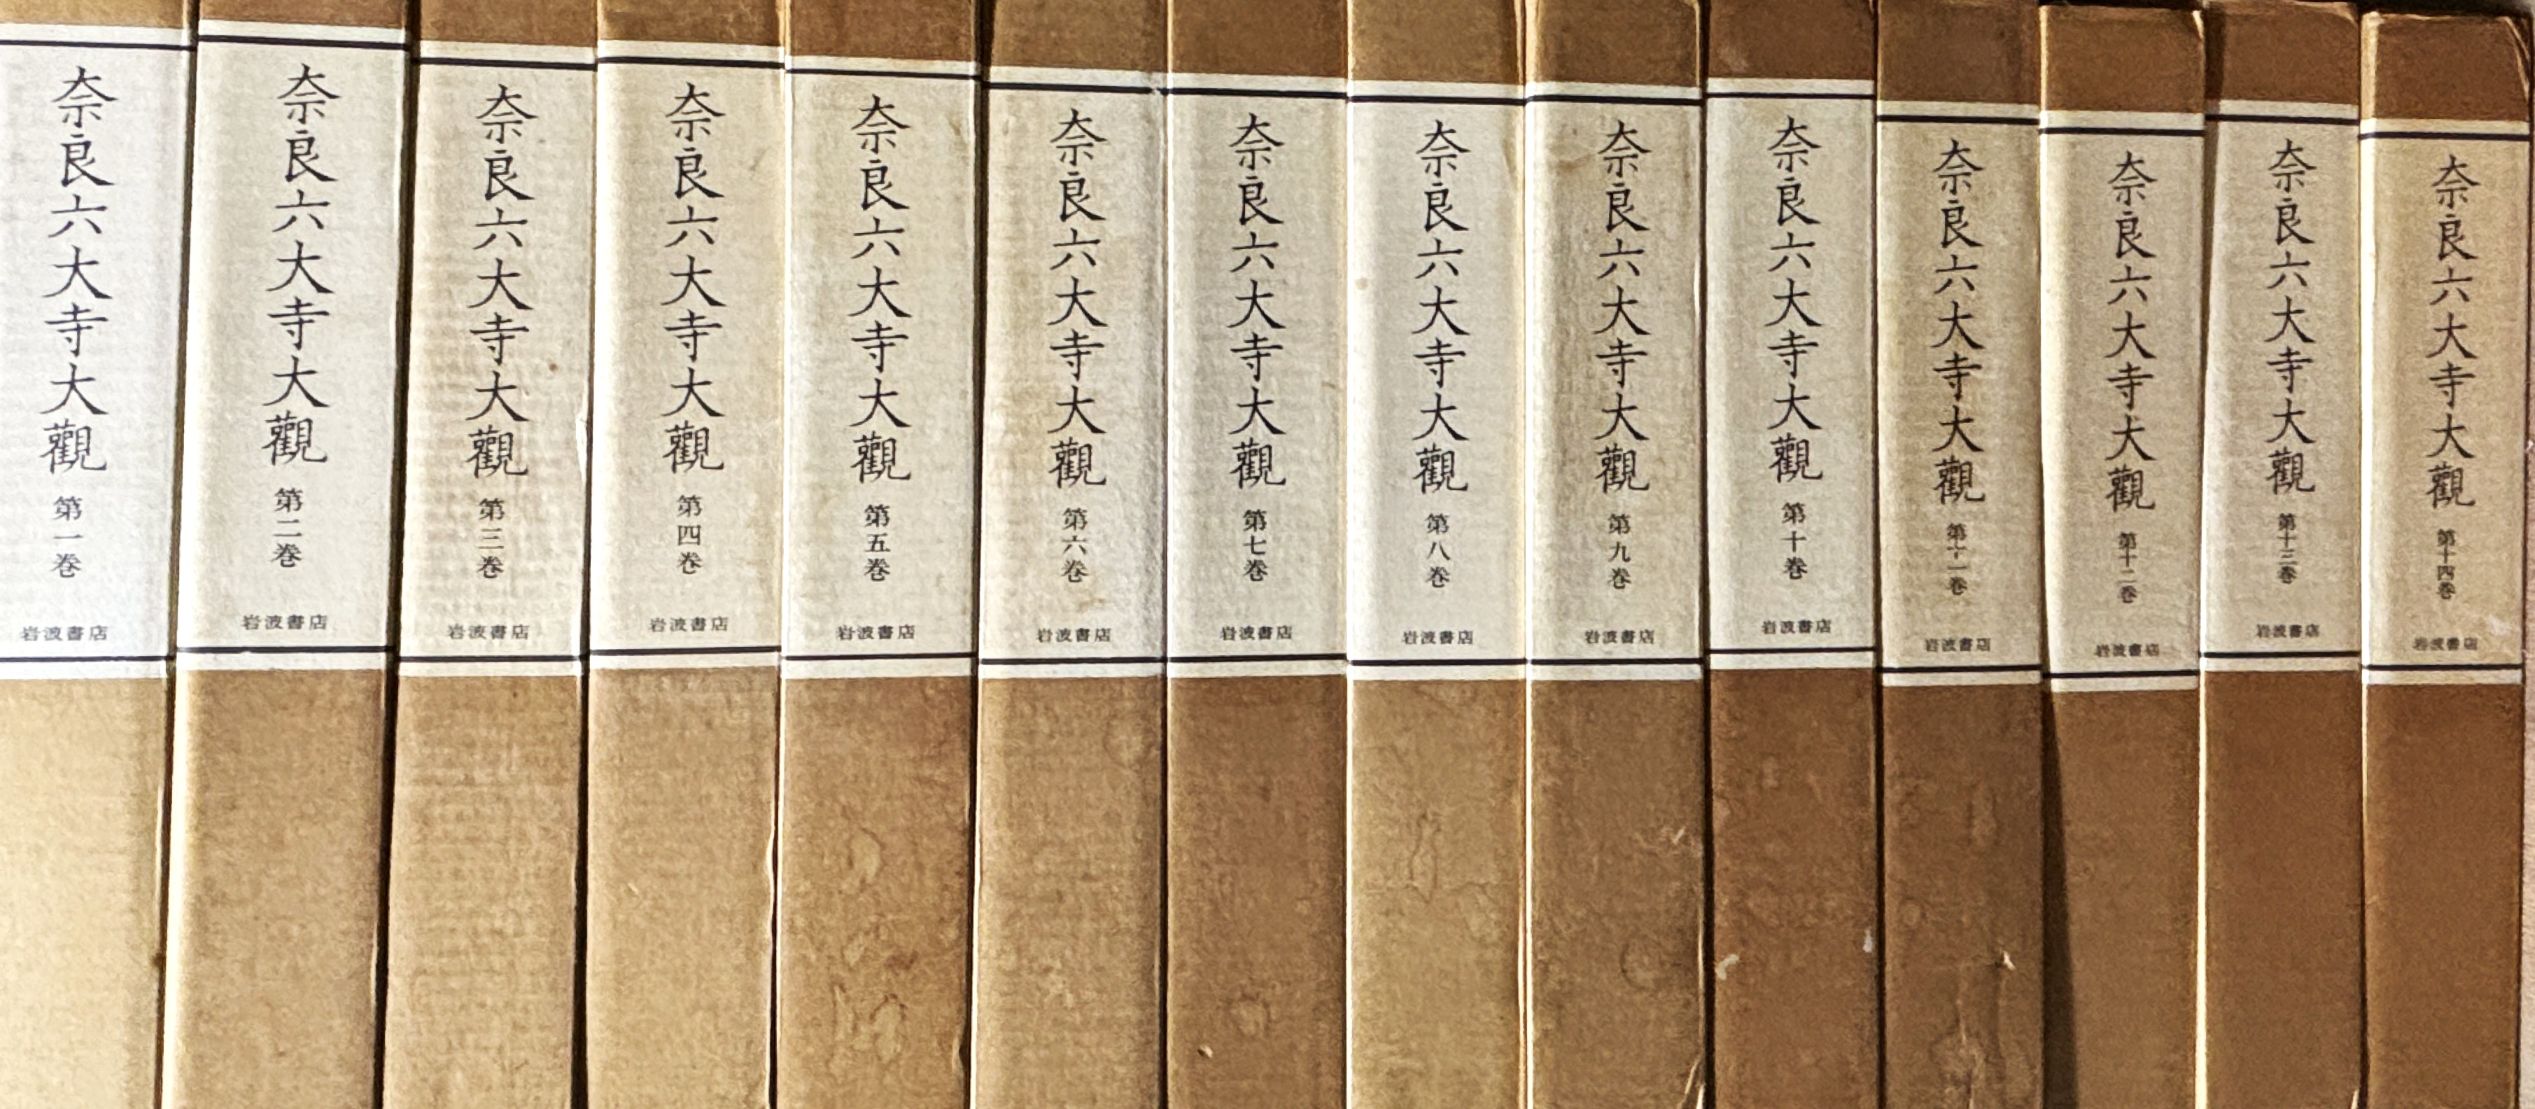 奈良六大寺大觀 第一巻
岩波書店
奈良六大寺大觀 第二巻
岩波書店
奈良六大寺大觀 第三巻
岩波書店
奈良六大寺大觀 第四巻
岩波書店
奈良六大寺大觀 第五巻
岩波書店
奈良六大寺大觀 第六巻
岩波書店
奈良六大寺大觀 第七巻
岩波書店
奈良六大寺大觀 第八巻
岩波書店
奈良六大寺大觀 第九巻
岩波書店
奈良六大寺大觀 第十巻
岩波書店
奈良六大寺大觀 第十一巻
岩波書店
奈良六大寺大觀 第十二巻
岩波書店
奈良六大寺大觀 第十三巻
岩波書店
奈良六大寺大觀 第十四巻
岩波書店